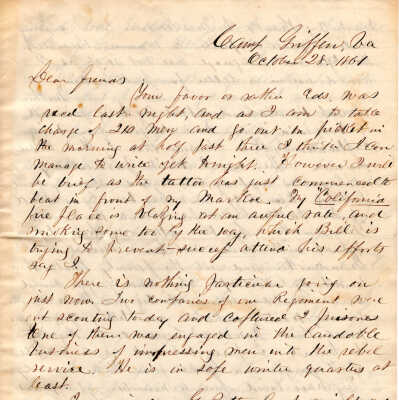 Camp Griffin, Va
October 28 1861
Dear friends,
Your favor or rather Eds, was
recd last night, and as I am to take
charge of 200 men and go out on picket in
the morning at half past three I think I can
manage to write yet tonight. However I will
be brief as the tattoo has just commenced to
beat in front of my Markee. My California
fire place is blazing at an awful rate and
smoking some too by the way, which Bill is
trying to prevent - success attend his efforts
say I.
There is nothing particular going on
just now. Two companies of our Regiment were
out scouting today and captured 2 prisoners
One of them was engaged in the laudable
business of impressing men into the rebel
service. He is in safe winter quarters at
least.